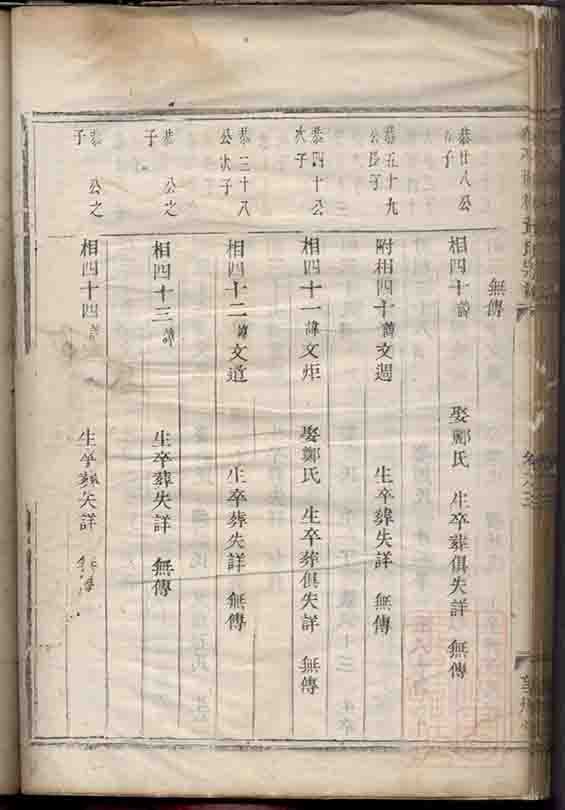 無傳
恭廿八公
子
相四十諱
娶鄭氏 生卒葬俱失詳 無傳
恭五十九
公長子
附相四十諱文週
生卒葬失詳 無傳
恭四十公
次子
相四十一諱文炬
娶鄭氏 生卒葬俱失詳 無傳
恭三十八
公次子
相四十二諱文道
生卒葬失詳 無傳
恭 公之
子
相四十三諱
生卒葬失詳 無傳
恭 公之
子
相四十四諱
生卒葬失詳